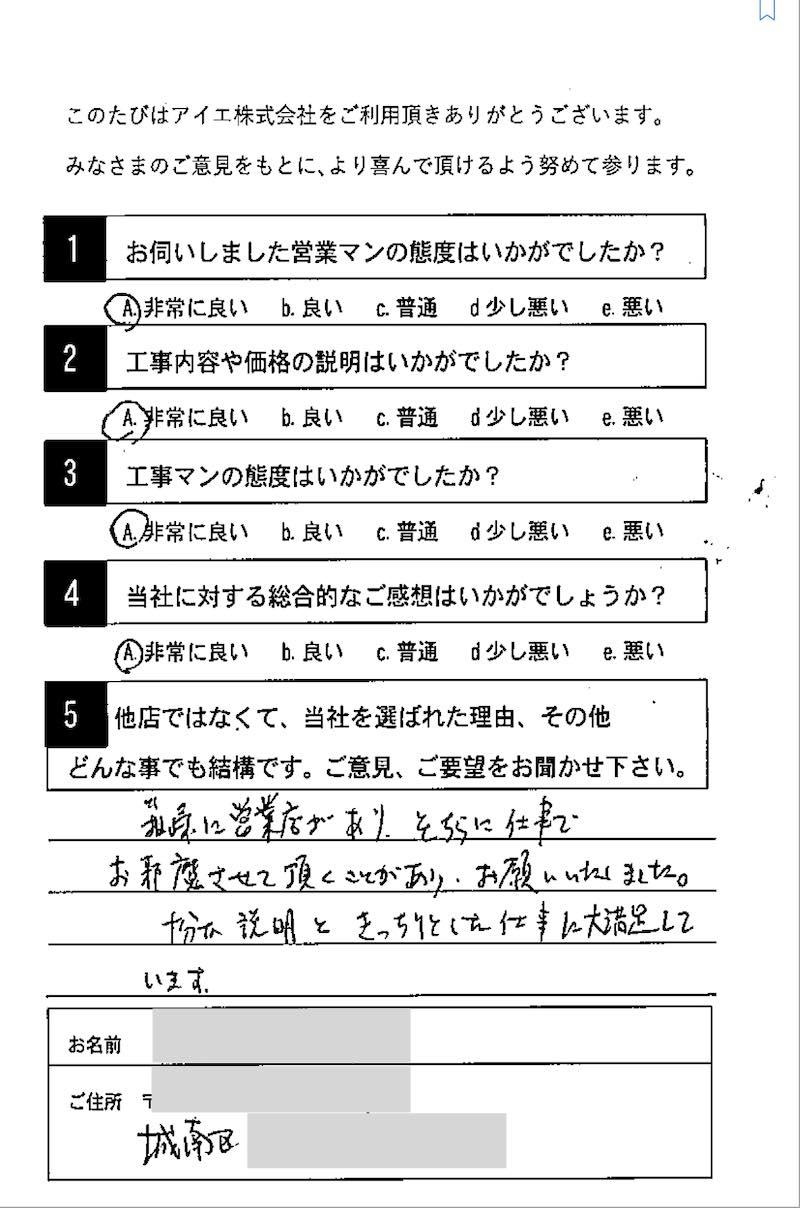 このたびはアイエ株式会社をご利用頂きありがとうございます。
みなさまのご意見をもとに、より喜んで頂けるよう努めて参ります。
1 お伺いしました営業マンの態度はいかがでしたか？
A.非常に良い b.良い c.普通 d少し悪い e.悪い
2 工事内容や価格の説明はいかがでしたか？
A.非常に良い b.良い c.普通 d少し悪い e.悪い
3 工事マンの態度はいかがでしたか？
A.非常に良い b.良い c.普通 d少し悪い e.悪い
4 当社に対する総合的なご感想はいかがでしょうか？
A.非常に良い b.良い c.普通 d少し悪い e.悪い
5 他店ではなくて、当社を選ばれた理由、その他
どんな事でも結構です。ご意見、ご要望をお聞かせ下さい。
に営業店があり、そちらに仕事で
お邪魔させて頂くことがあり、お願いいたしました。
十分な説明ときっちりとした仕事に大満足して
います。
お名前
ご住所 〒
城南区